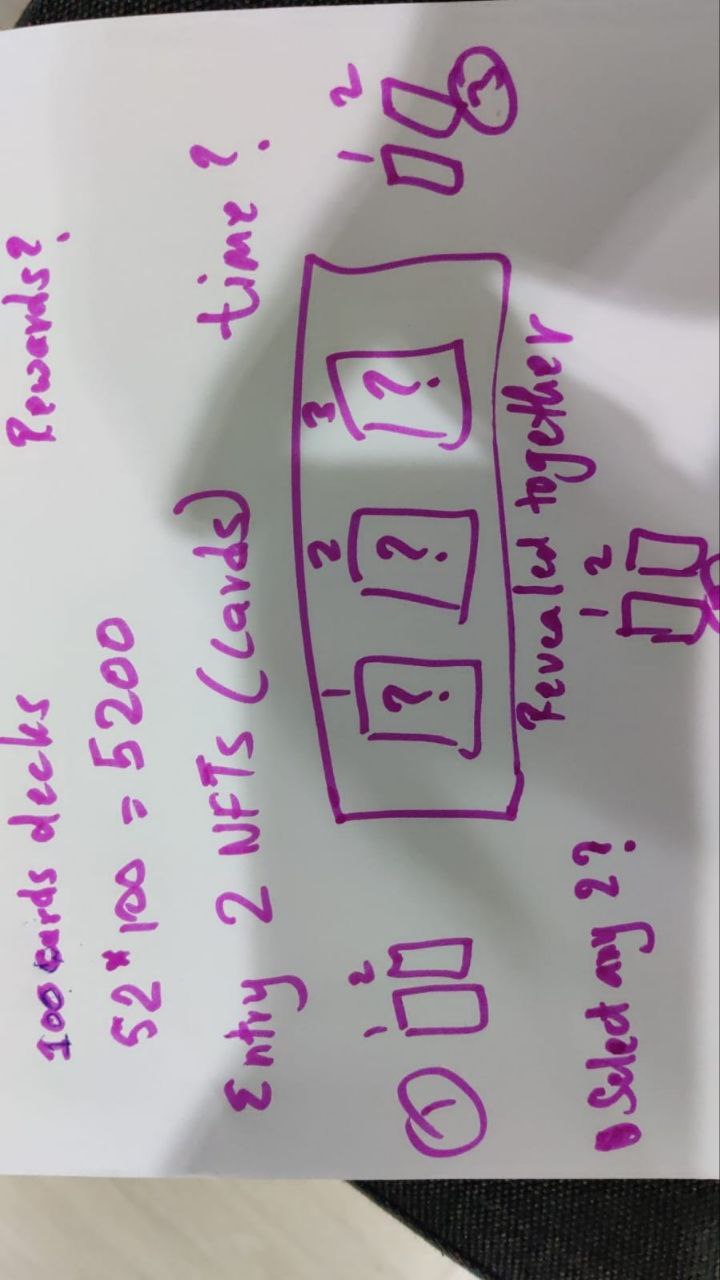 100 cards decks
Rewards?
52 * 100 = 5200
Entry 2 NFTs (cards)
time?
1 2 3
1 2
1 2
? ? ?
1
3
Revealed together
Select any 2?
1 2